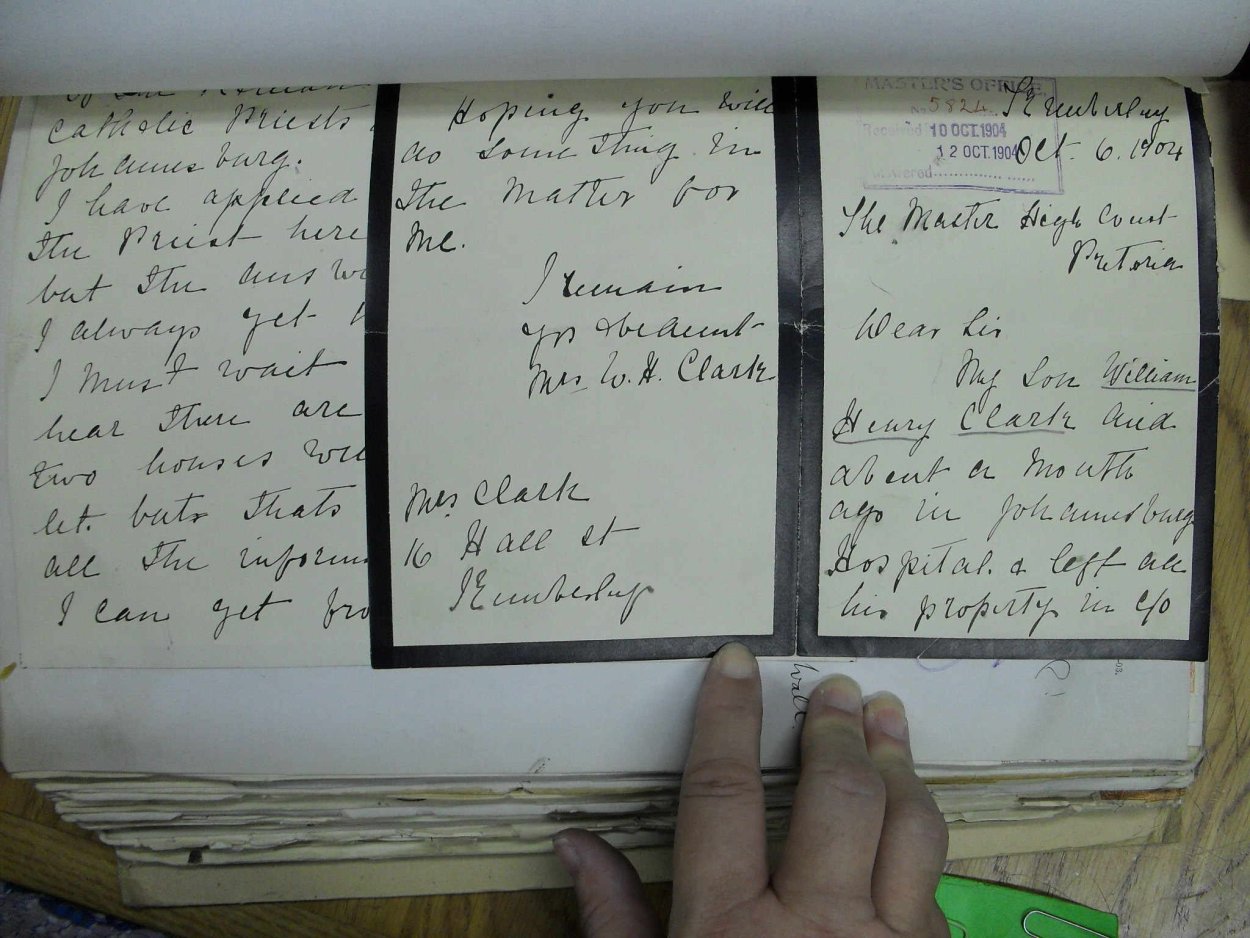 MASTER'S OFFICE
No. 5824
Received 10 OCT. 1904
12 OCT. 1904
Answered
Kimberley
Oct. 6. 1904
The Master High Court
Pretoria
Dear Sir
My Son William
Henry Clark died
about a Month
ago in Johannesburg
Hospital. & left all
his property in c/o
of the Roman
Catholic Priests
Johannesburg.
I have applied
the Priest here
but the answ
I always get
I Must wait
hear there are
two houses
let. but thats
all the inform
I can get fro
Hoping you will
do some thing in
the Matter for
Me.
I remain
yrs obedient
Mrs. W. H. Clark
Mrs Clark
16 Hall St
Kimberley